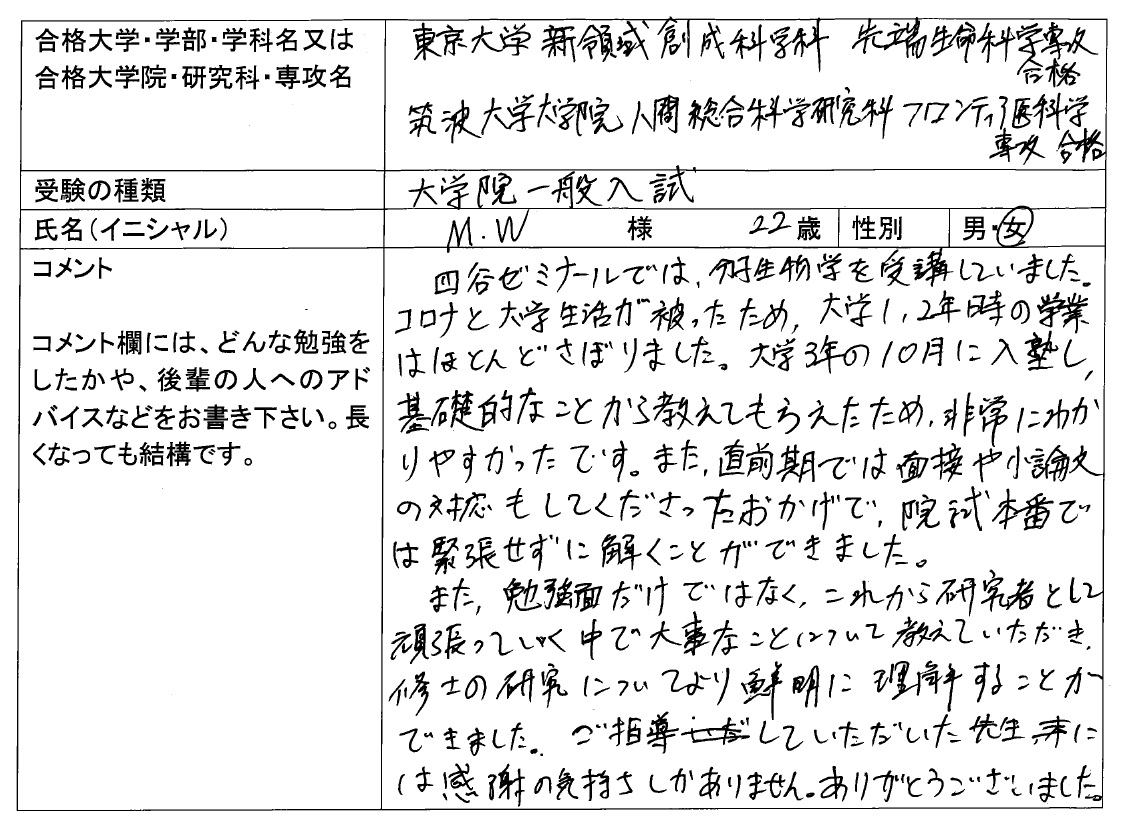 合格大学・学部・学科名又は
合格大学院・研究科・専攻名
東京大学 新領域創成科学科 先端生命科学専攻
合格
筑波大学大学院 人間総合科学研究科 フロンティア医科学
専攻 合格
受験の種類
大学院一般入試
氏名(イニシャル)
M.W 様 22歳 性別 男・女
コメント
コメント欄には、どんな勉強を
したかや、後輩の人へのアド
バイスなどをお書き下さい。長
くなっても結構です。
四谷ゼミナールでは、分子生物学を受講していました。
コロナと大学生活が被ったため、大学1,2年時の学業
はほとんどさぼりました。大学3年の10月に入塾し、
基礎的なことから教えてもらえたため、非常にわか
りやすかったです。また、直前期では面接や小論文
の対応もしてくださったおかげで、院試本番で
は緊張せずに解くことができました。
また、勉強面だけではなく、これから研究者として
頑張っていく中で大事なことについて教えていただき、
修士の研究についてより鮮明に理解することが
できました。ご指導していただいた先生に
は感謝の気持ちしかありません。ありがとうございました。